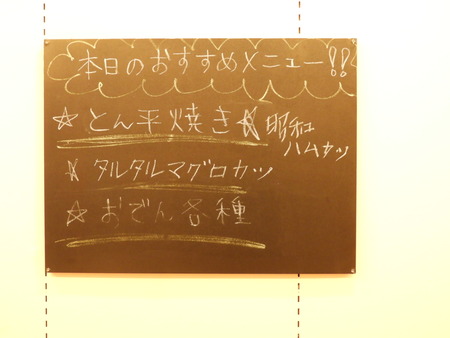 本日のおすすめメニュー!!
☆とん平焼き
☆昭和
ハムカツ
☆タルタルマグロカツ
☆おでん各種